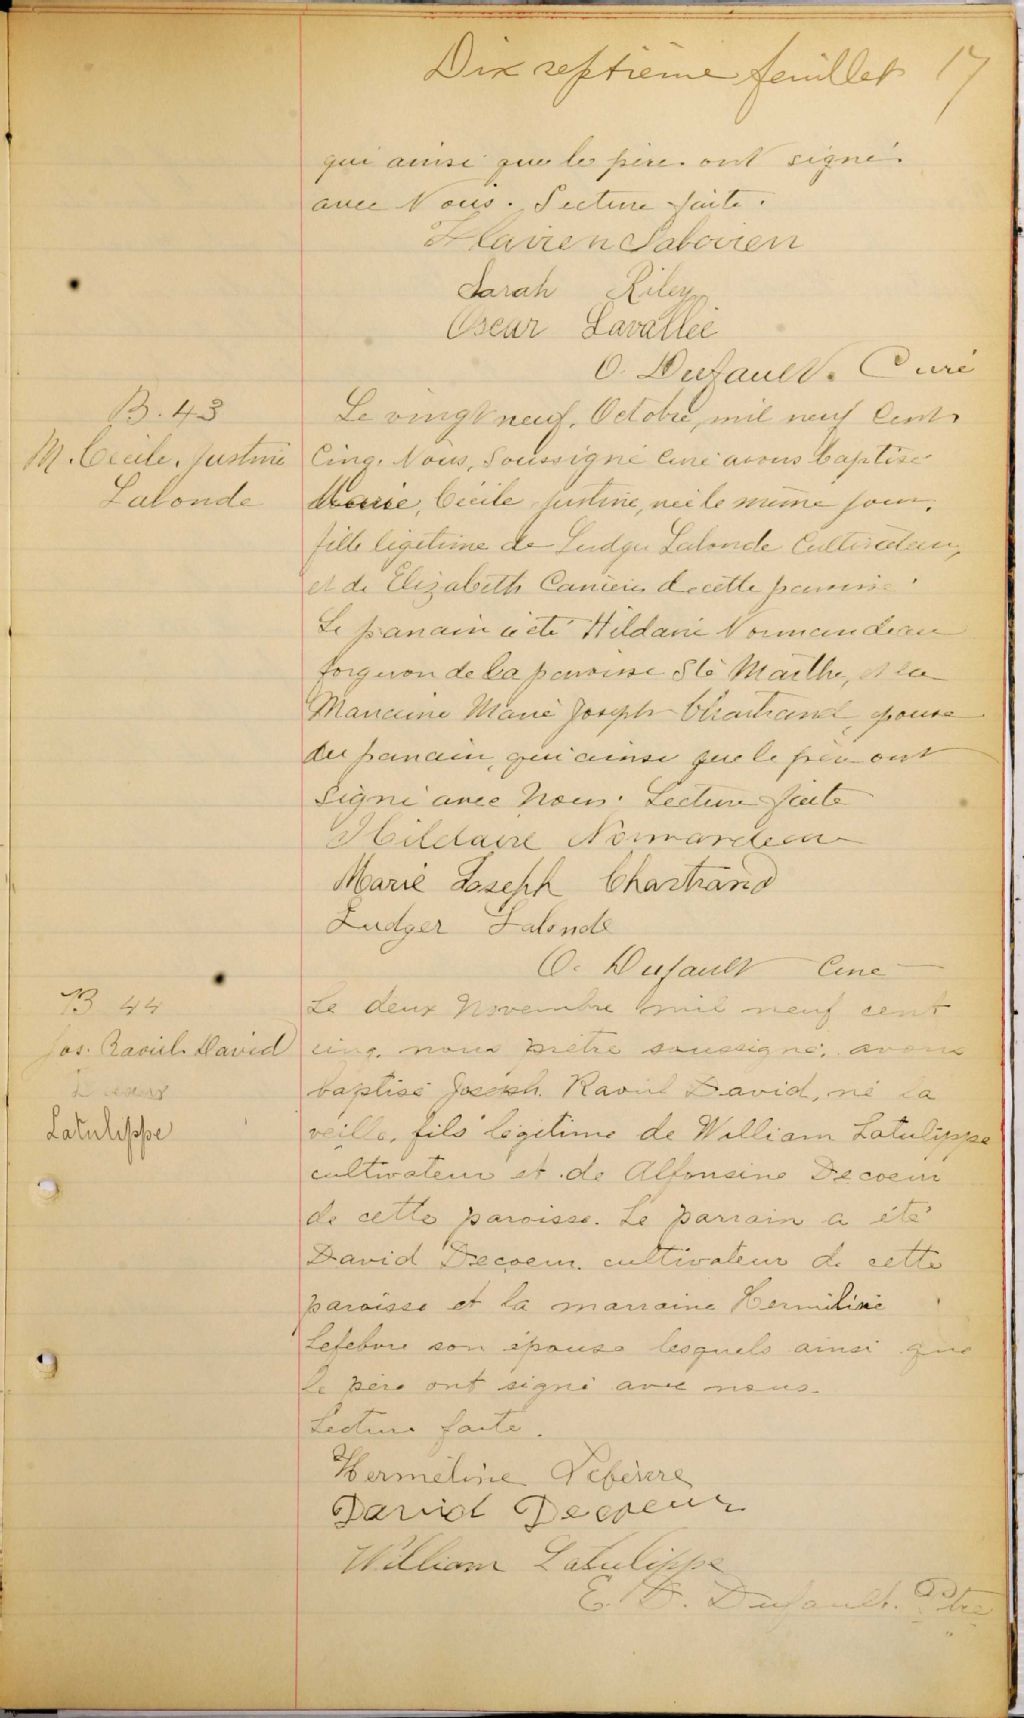 Dix septième feuillet 17
qui ainsi que le père ont signé
avec Nous. Lecture faite.
Flavien Sabourin
Sarah Riley
Oscar Lavallée
O. Dufault. Curé
B. 43
M. Cécile. Justine
Lalonde
Le vingt neuf, Octobre, mil neuf Cent
Cinq. Nous, Soussigné Curé avons baptisé
Marie, Cécile Justine, née le même jour,
fille légitime de Ludger Lalonde Cultivateur,
et de Elizabeth de cette paroisse
Le parrain a été Hildaire Normandeau
forgeron de la paroisse Ste Marthe, et la
Marraine Marie Joseph Chartrand, épouse
du parrain, qui ainsi que le père ont
Signé avec Nous. Lecture faite
Hildaire Normandeau
Marie Joseph Chartrand
Ludger Lalonde
O. Dufault Curé
B 44
Jos. Raoul David
Latulippe
Le deux Novembre mil neuf cent
cinq, nous prêtre soussigné, avons
baptisé Joseph Raoul David, né la
veille, fils légitime de William Latulippe
cultivateur et de Alfonsine Decoeur
de cette paroisse. Le parrain a été
David Decoeur cultivateur de cette
paroisse et la marraine Herméline
Lefebvre son épouse lesquels ainsi que
le père ont signé avec nous.
Lecture faite.
Herméline Lefebvre
David Decoeur
William Latulippe
E. D. Dufault. Ptre